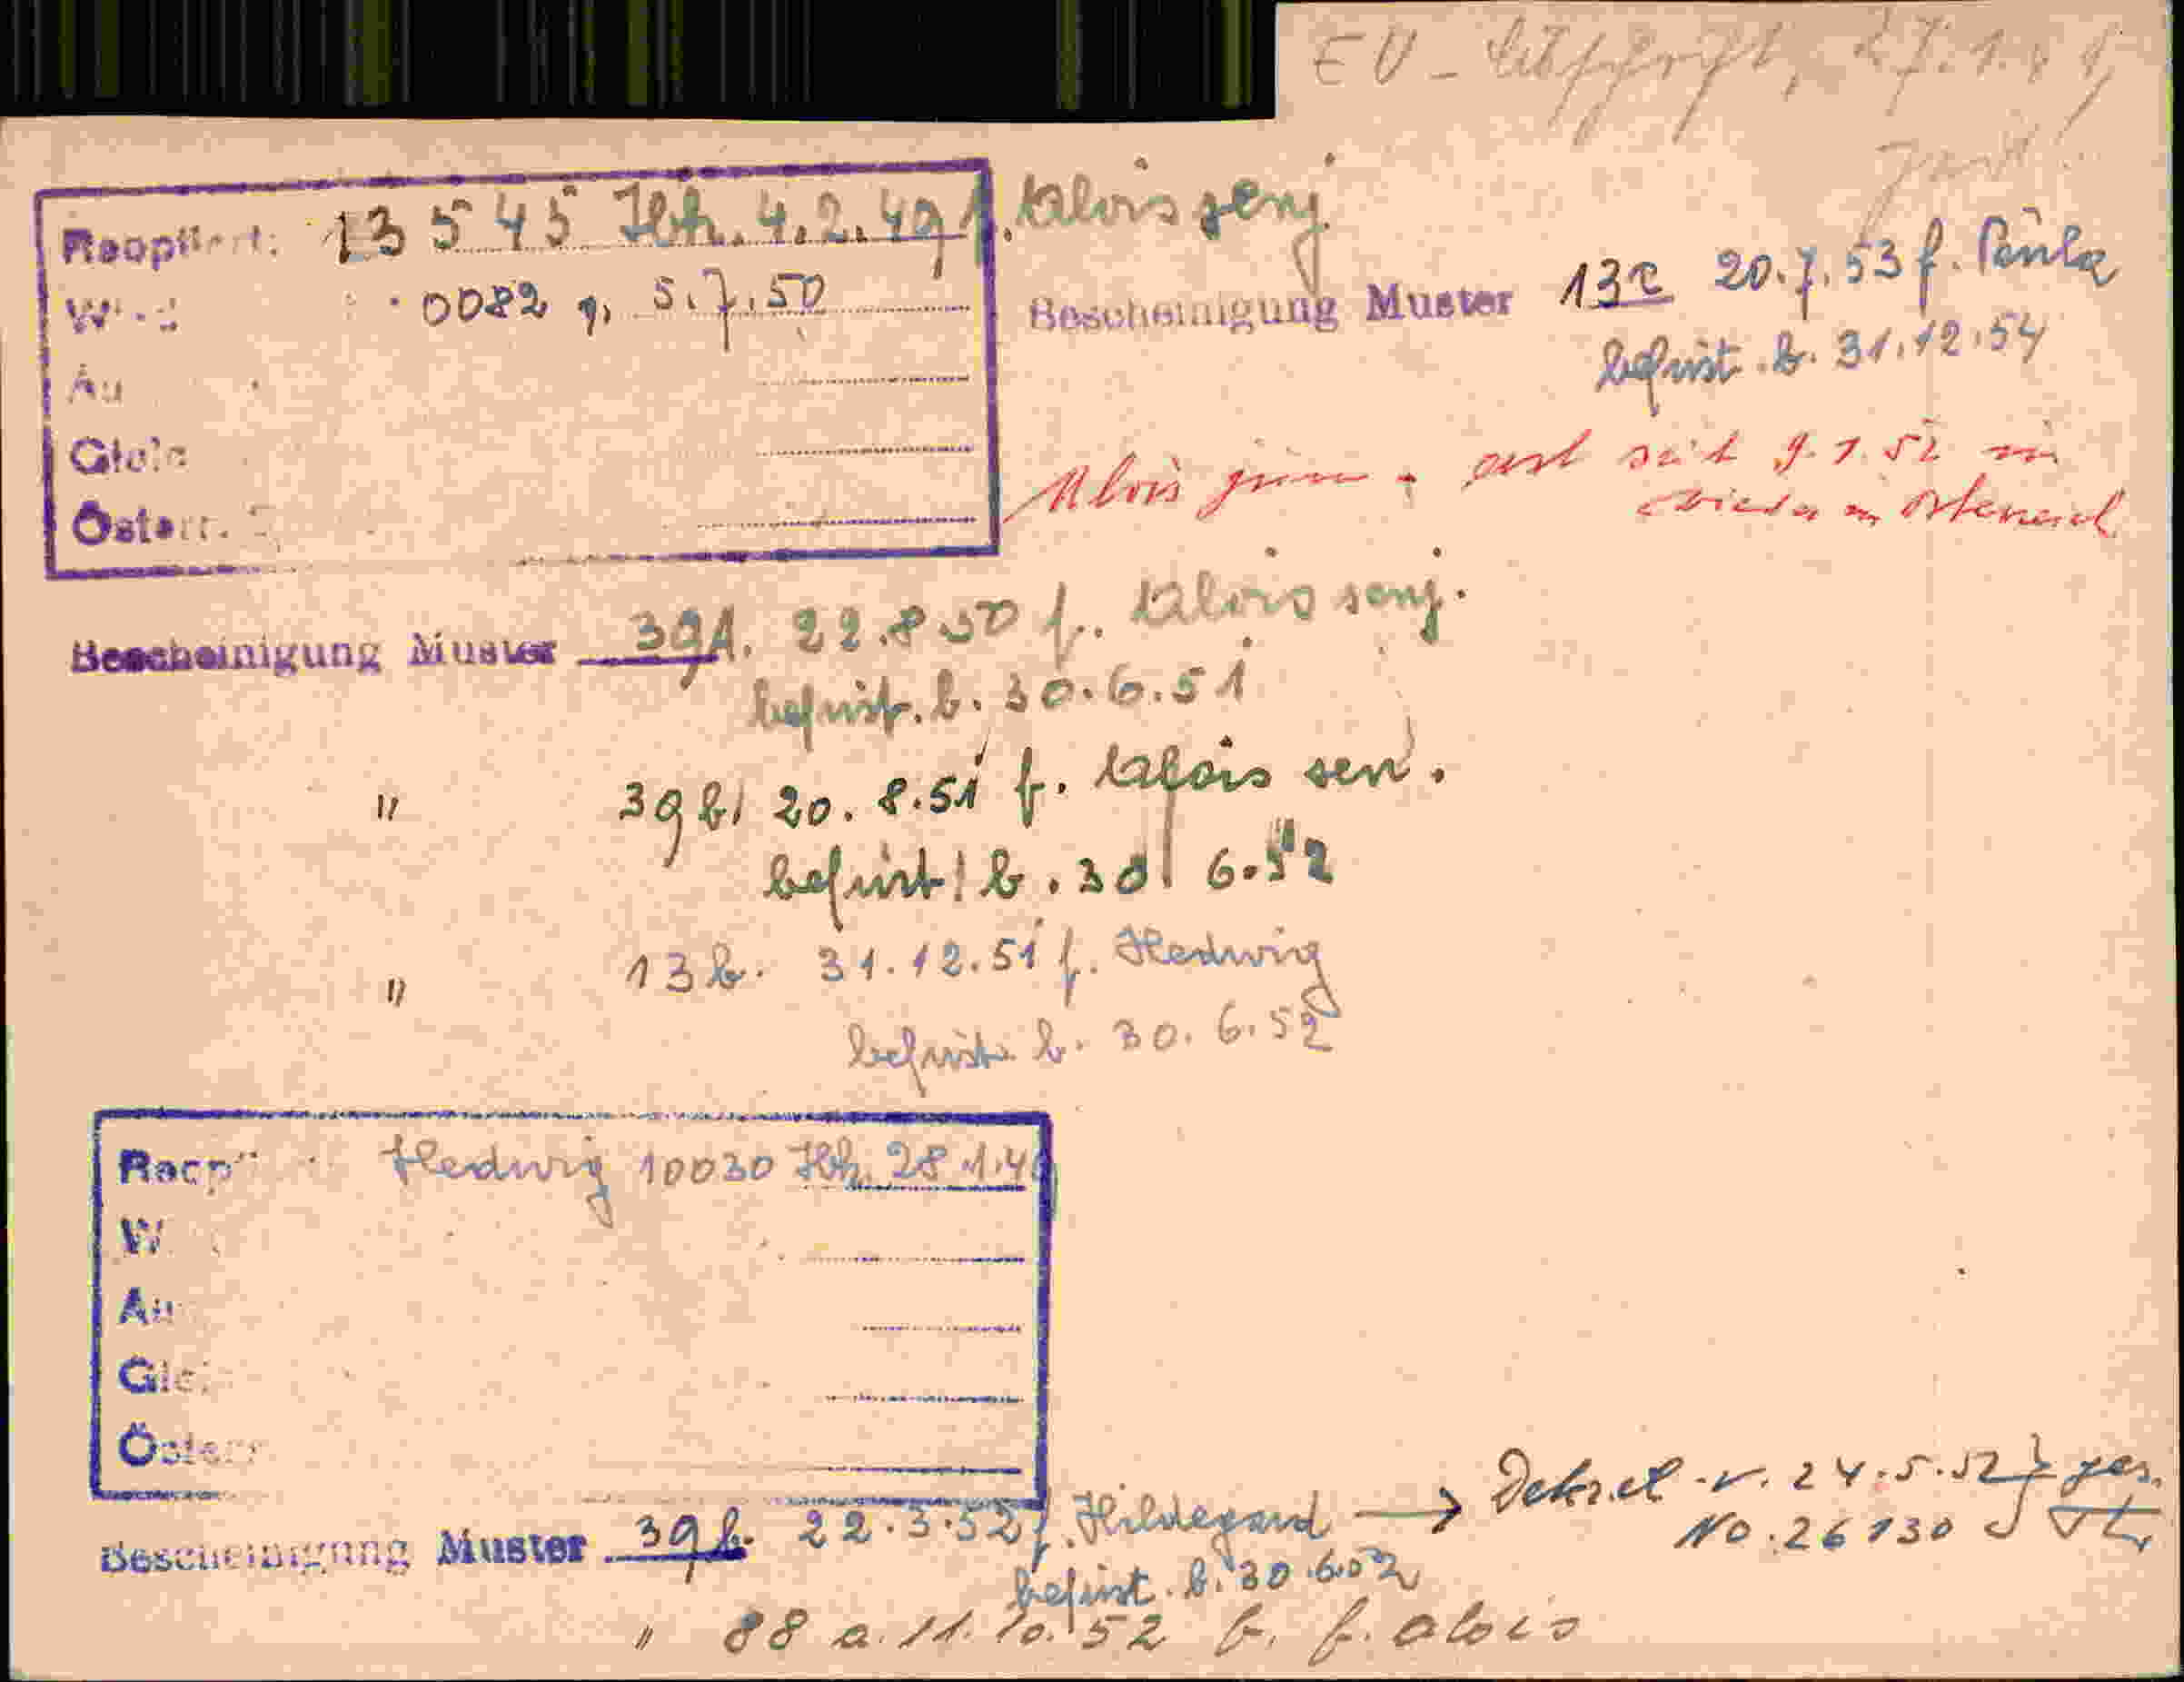 EV - Abschrift, 27.1.
13545 Hh. 4.2.49 f. Alois senj.
W
0082 g, 5.7.50
Au
Österr.
Bescheinigung Muster 13c 20.7.53 f. Paula
befrist. b. 31.12.54
Alois jun. seit 9.1.52 in
wieder in Österreich
Bescheinigung Muster 39A. 22.8.50 f. Alois senj.
befrist. b. 30.6.51
" 39b/ 20.8.51 f. Alois sen.
befrist b. 30 6.52
" 13b. 31.12.51 f. Hedwig
befrist b. 30.6.52
Hedwig 10030 Hh. 28.1.4
W
Au
Österr
Bescheinigung Muster 39b. 22.3.52 f. Hildegard → Dekret v. 24.5.52 } ges.
No. 26130
befrist. b. 30.6.52
" 88 a. 11.10.52 f. Alois